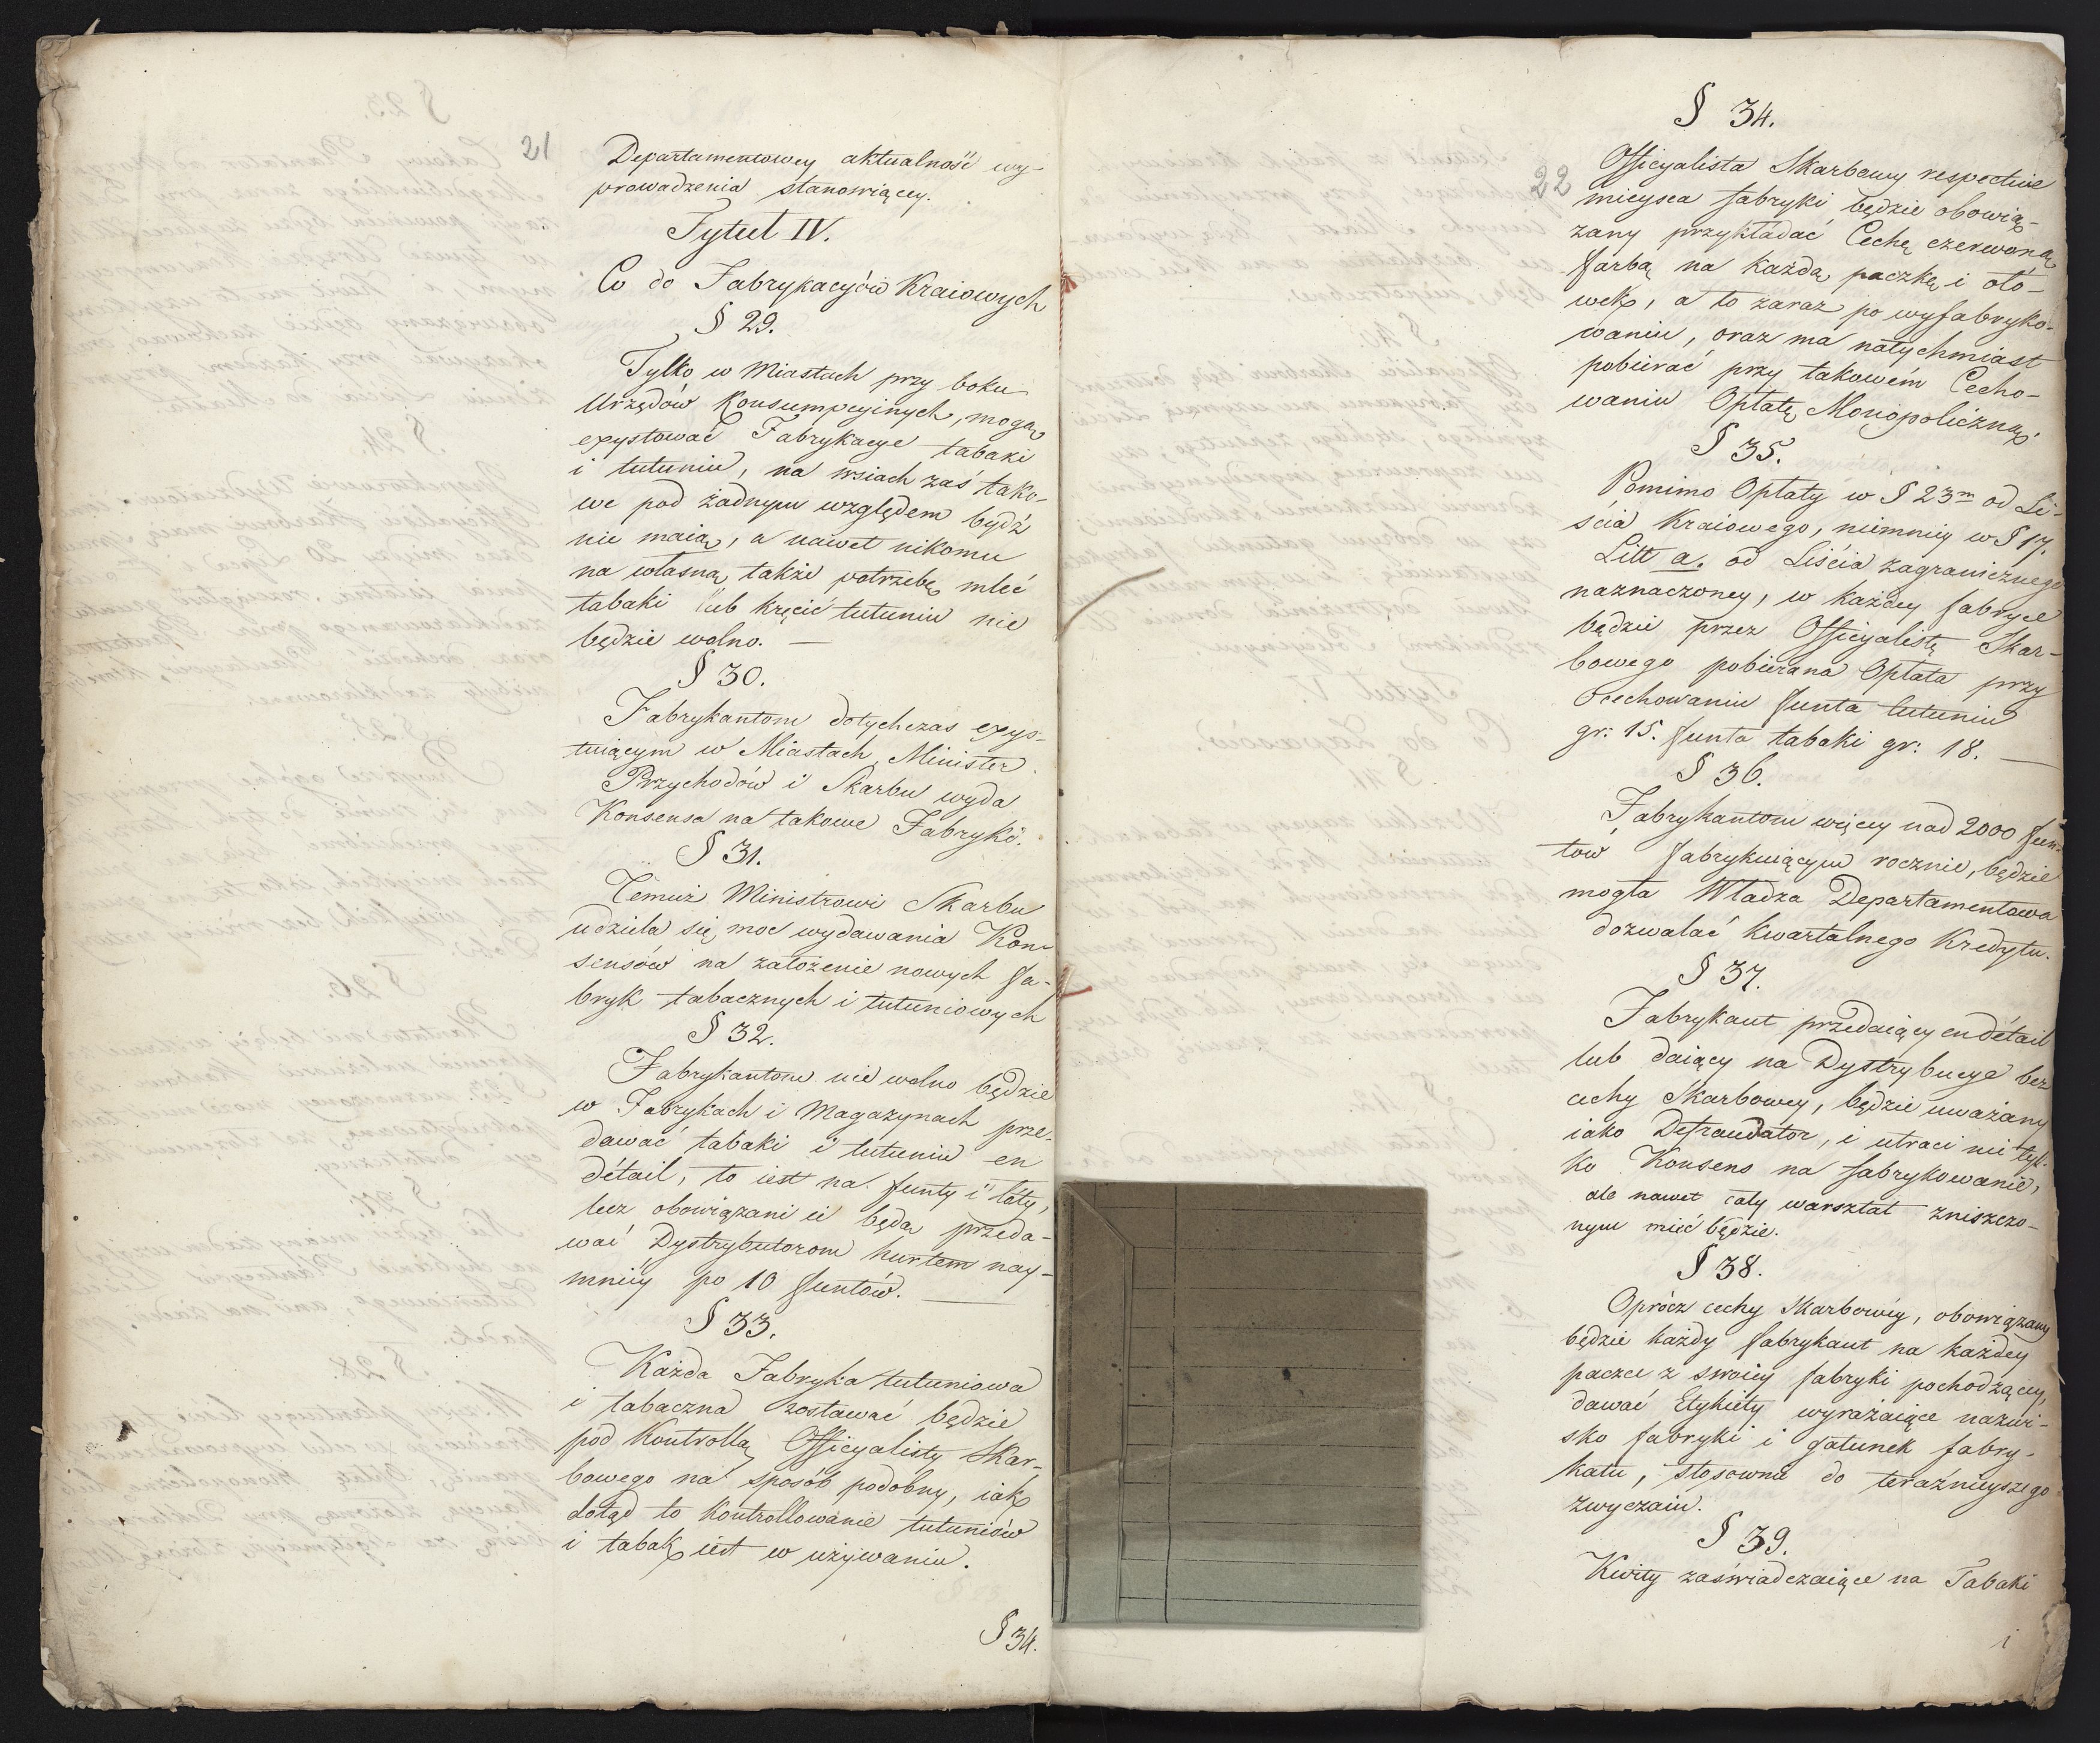 21
Departamentowey aktualność wy-
prowadzenia stanowiącey.
Tytuł IV.
Co do Fabrykacyiów Kraiowych
§ 29.
Tylko w Miastach przy boku
Urzędów Konsumpcyinych, mogą
exystować Fabrykacye tabaki
i tutuniu, na wsiach zaś tako-
we pod żadnym względem bydź
nie maią, a nawet nikomu
na własną także potrzebę mleć
tabaki lub kręcić tutuniu nie
będzie wolno. —
§ 30.
Fabrykantom dotychczas exys-
tuiącym w Miastach, Minister
Przychodów i Skarbu wyda
Konsensa na takowe Fabryki.
§ 31.
Temuż Ministrowi Skarbu
udziela się moc wydawania Kon-
sensów na założenie nowych fa-
bryk tabacznych i tutuniowych
§ 32.
Fabrykantom nie wolno będzie
w Fabrykach i Magazynach prze-
dawać tabaki i tutuniu en
détail, to iest na funty i łóty,
lecz obowiązani ci będą przeda-
wać Dystrybutorom hurtem nay-
mniey po 10 funtów. —
§ 33.
Każda Fabryka tutuniowa
i tabaczna zostawać będzie
pod Kontrollą Officyalisty Skar-
bowego na sposób podobny, iak
dotąd to Kontrollowanie tutuniów
i tabak iest w używaniu.
§ 34.
22
§ 34.
Officyalista Skarbowy respective
mieysca fabryki będzie obowią-
zany przykładać Cechę czerwoną
farbą na każdą paczkę i oło-
wek, a to zaraz po wyfabryko-
waniu, oraz ma natychmiast
pobierać przy takowém Cecho-
waniu Opłatę Monopoliczną.
§ 35.
Pomimo Opłaty w § 23m od Li-
ścia Kraiowego, niemniey w § 17.
Litt a. od Liścia zagranicznego
naznaczoney, w każdey fabryce
będzie przez Officyalistę Skar-
bowego pobierana Opłata przy
Ocechowaniu funta tutuniu
gr: 15. funta tabaki gr: 18. —
§ 36.
Fabrykantom więcey nad 2000 fun-
tów fabrykuiącym rocznie, będzie
mogła Władza Departamentowa
dozwalać kwartalnego Kredytu.
§ 37.
Fabrykant przedaiący en détail
lub daiący na Dystrybucye bez
cechy Skarbowey, będzie uważany
iako Defraudator, i utraci nie tyl-
ko Konsens na fabrykowanie,
ale nawet cały warsztat zniszczo-
nym mieć będzie.
§ 38.
Oprócz cechy Skarbowéy, obowiązany
będzie każdy fabrykant na każdey
paczce z swoiey fabryki pochodzącey,
dawać Etykiety wyrażaiące nazwi-
sko fabryki i gatunek fabry-
katu, stosownie do teraźnieyszego
zwyczaiu.
§ 39.
Kwity zaświadczaiące na Tabaki
i